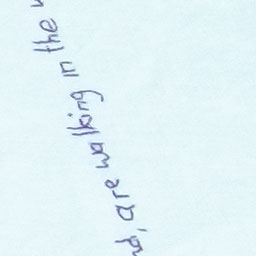 are walking in the